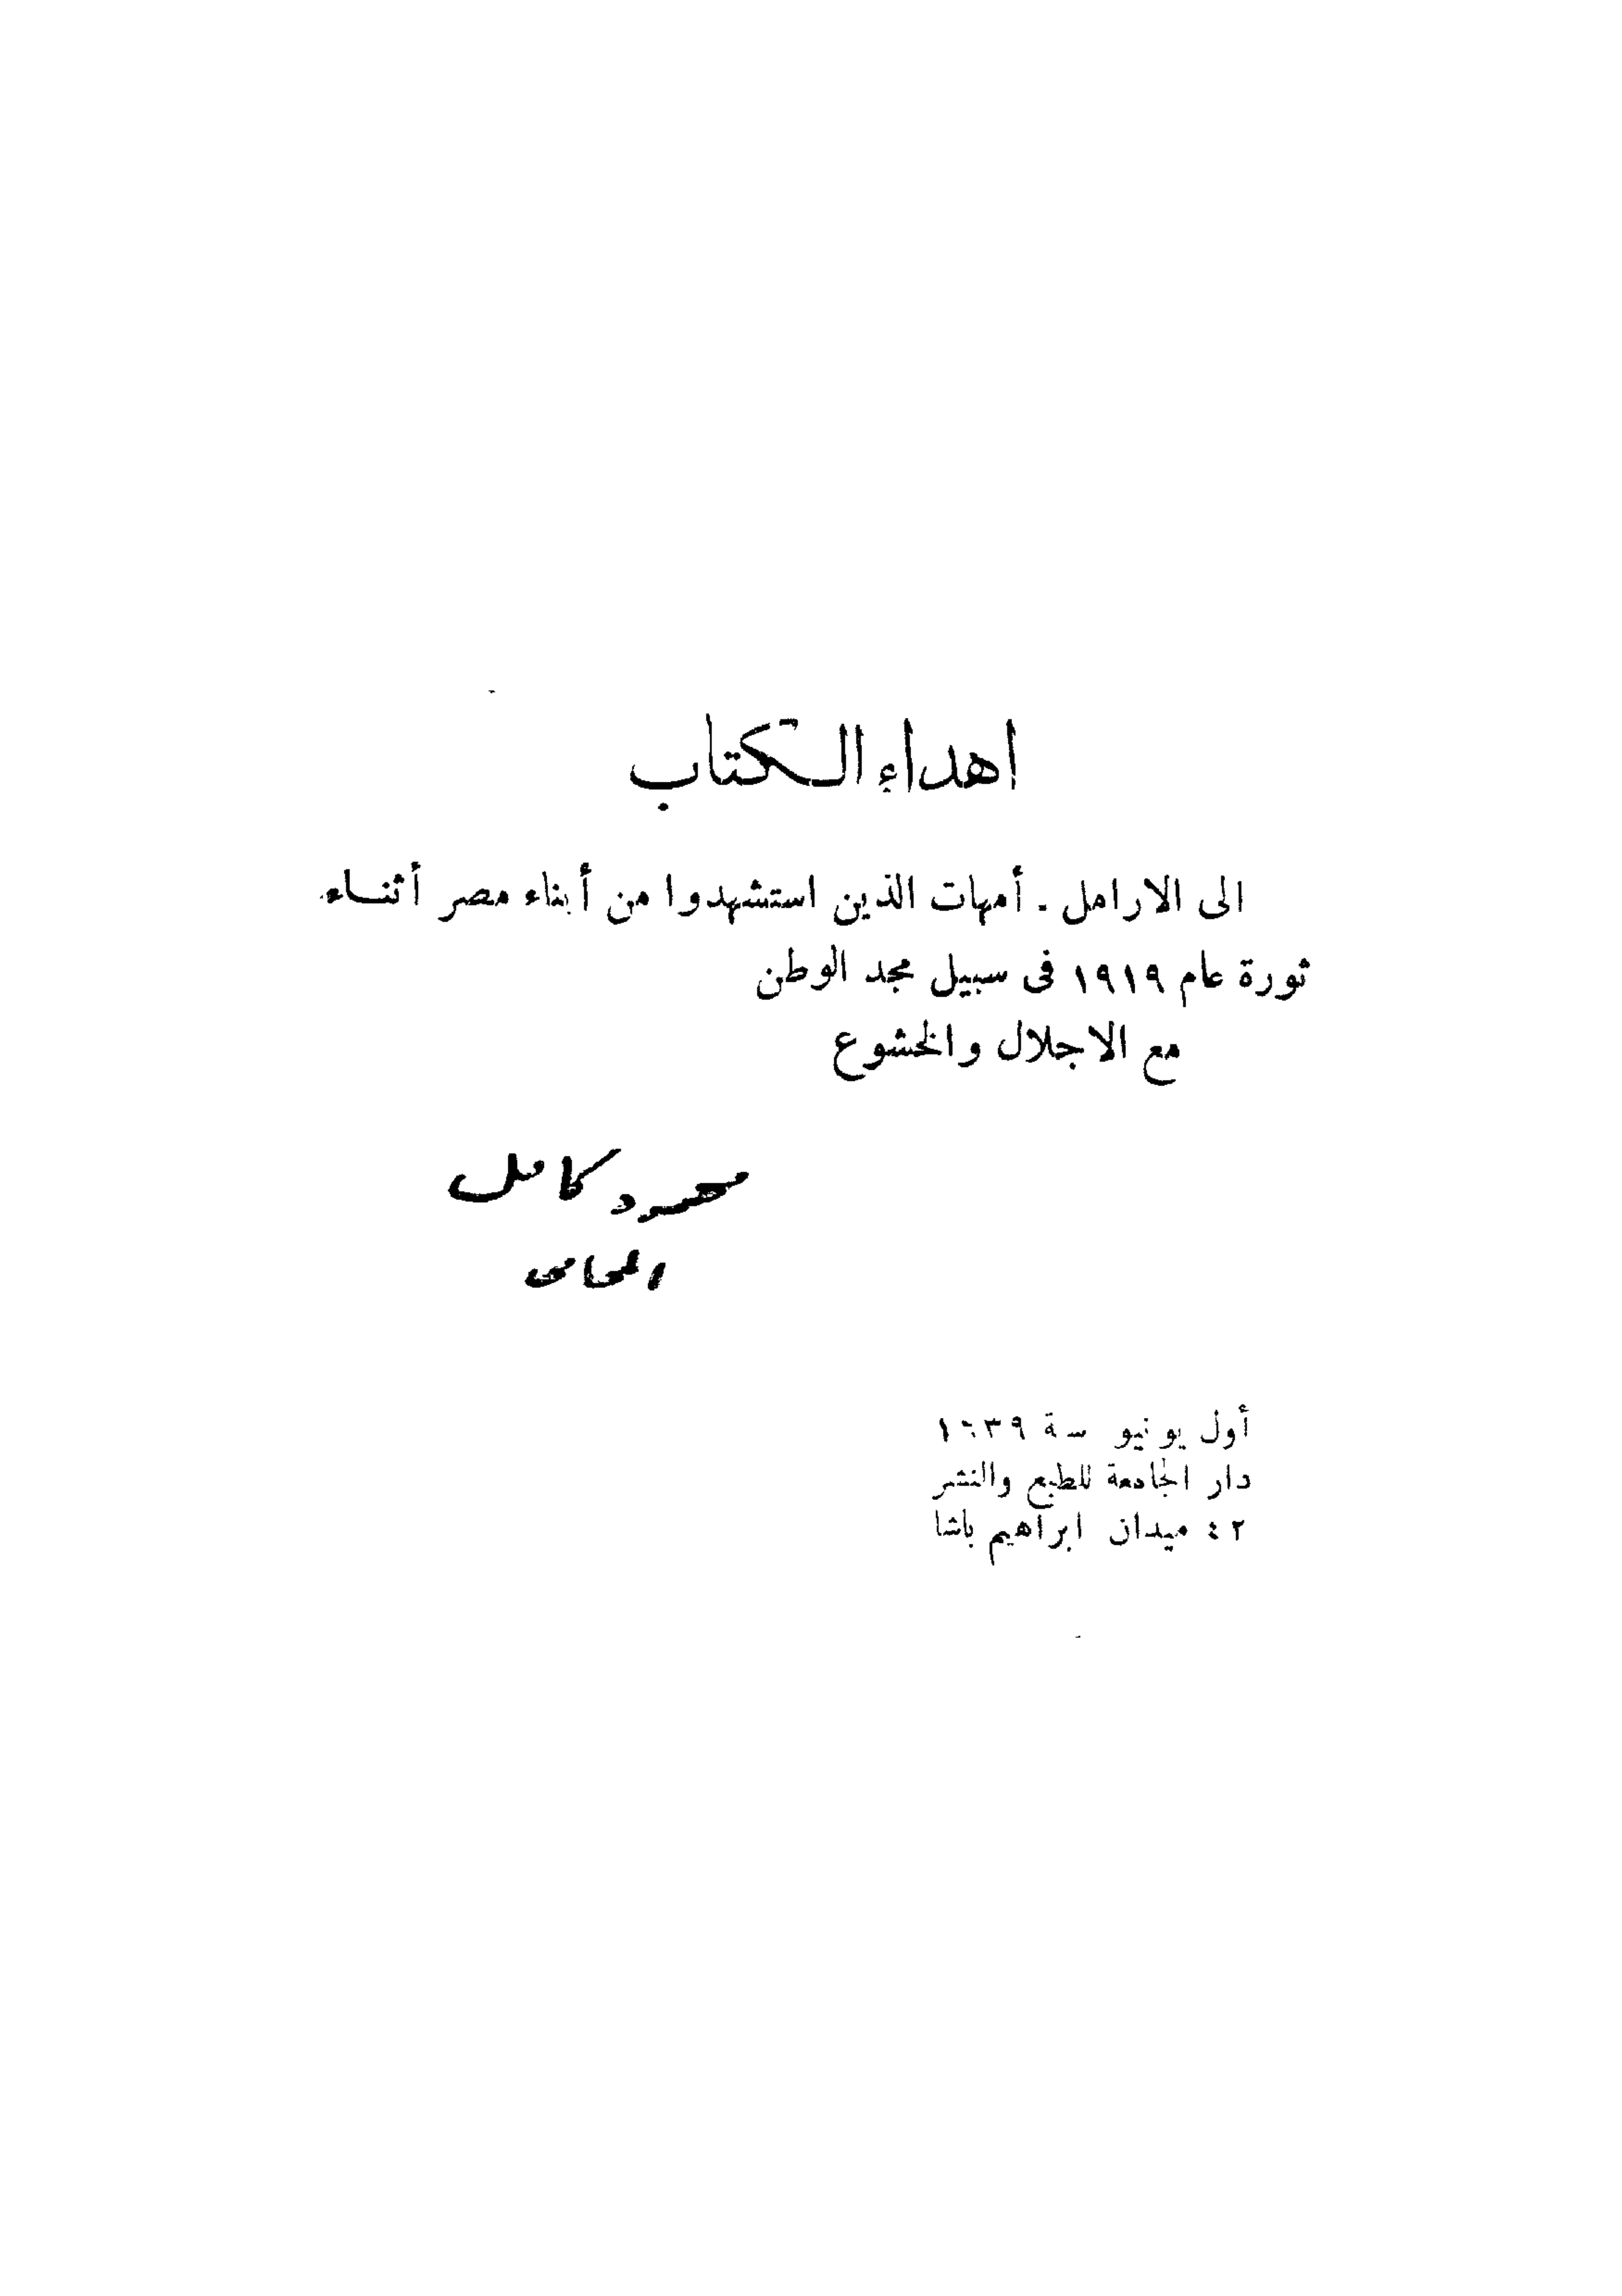 اهداء الكتاب
الى الارامل . أمهات الذين استشهدوا من أبناء مصر أثناء
ثورة عام ١٩١٩ فى سبيل مجد الوطن
مع الاجلال والخشوع
محمود كامل
المحامى
أول يونيو سنة ١٩٣٩
دار الجامعة للطبع والنشر
٤٢ ميدان ابراهيم باشا